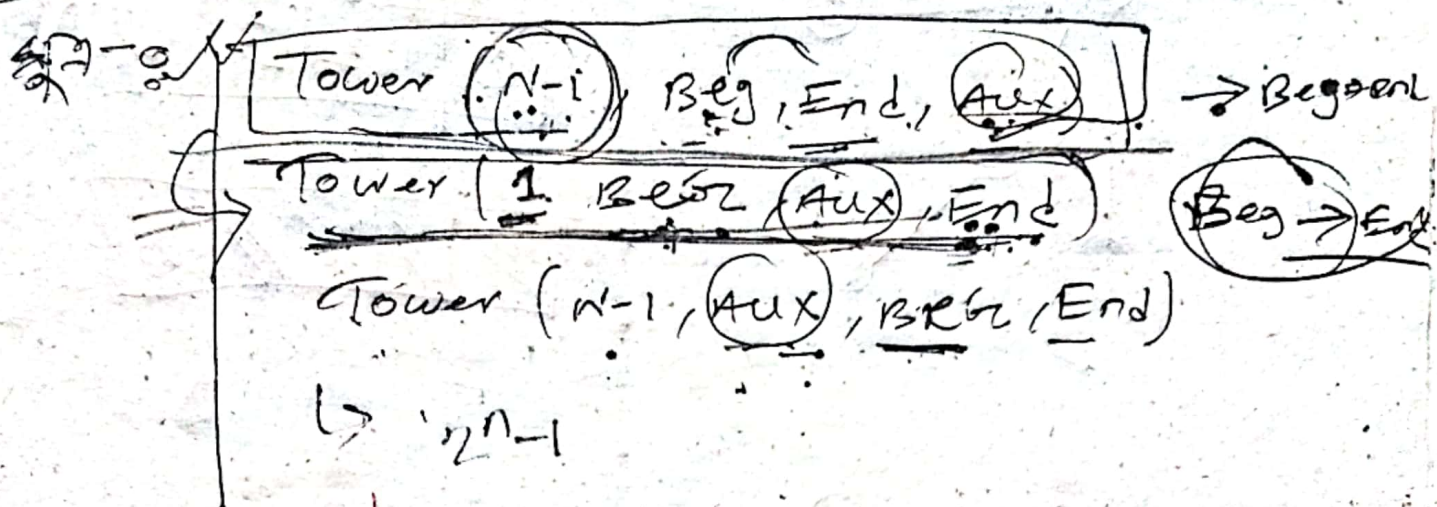 Tower (N-1, Beg, End, Aux) → Beg→end
Tower (1 BEG, Aux, End) Beg → End
Tower (N-1, Aux, BEG, End)
↳ 2ⁿ-1